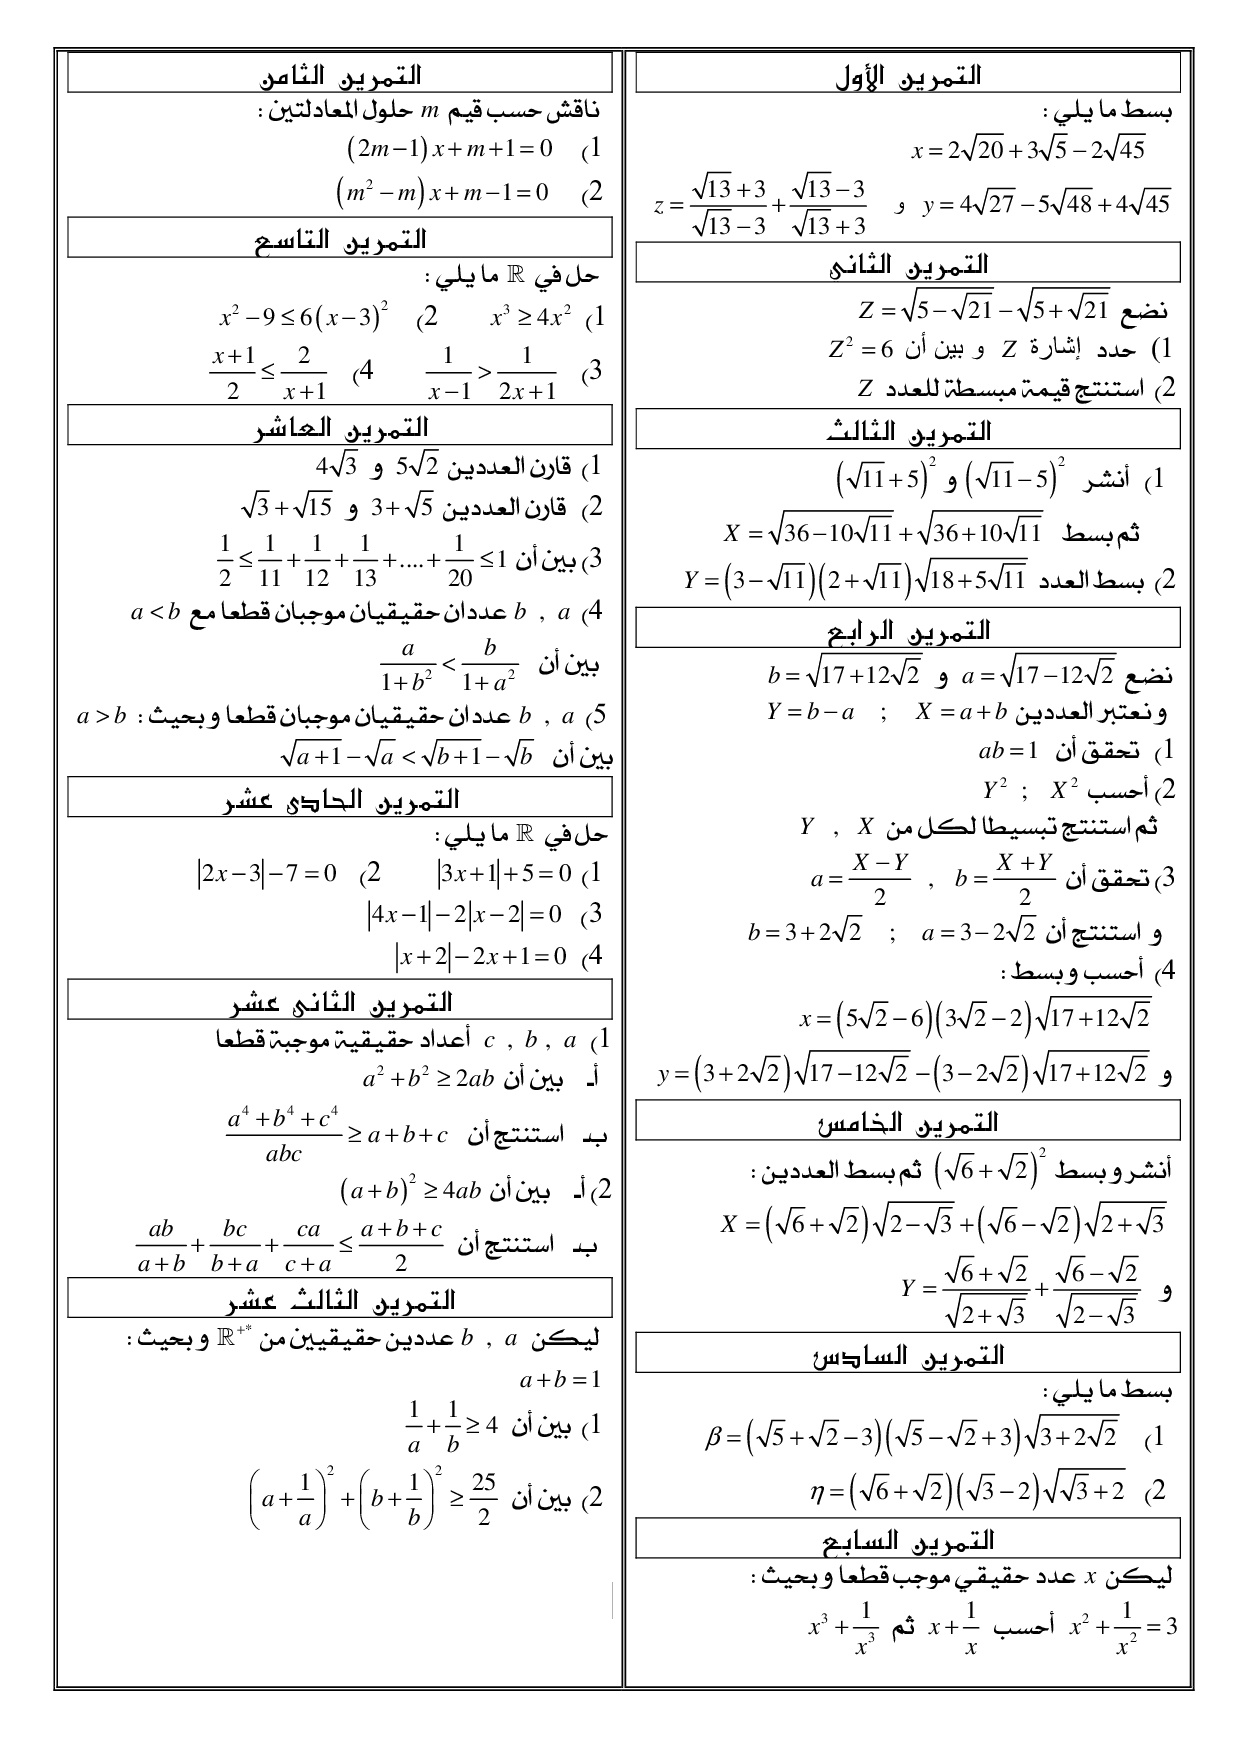 التمرين الأول
بسط ما يلي :
x = 2√20 + 3√5 − 2√45
y = 4√27 − 5√48 + 4√45 و z = (√13 + 3)/(√13 − 3) + (√13 − 3)/(√13 + 3)
التمرين الثاني
نضع Z = √(5 − √21) − √(5 + √21)
1) حدد إشارة Z و بين أن Z² = 6
2) استنتج قيمة مبسطة للعدد Z
التمرين الثالث
1) أنشر (√11 − 5)² و (√11 + 5)²
ثم بسط X = √(36 − 10√11) + √(36 + 10√11)
2) بسط العدد Y = (3 − √11)(2 + √11)√(18 + 5√11)
التمرين الرابع
نضع a = √(17 − 12√2) و b = √(17 + 12√2)
و نعتبر العددين X = a + b ; Y = b − a
1) تحقق أن ab = 1
2) أحسب X² ; Y²
ثم استنتج تبسيطا لكل من X , Y
3) تحقق أن b = (X + Y)/2 , a = (X − Y)/2
و استنتج أن a = 3 − 2√2 ; b = 3 + 2√2
4) أحسب و بسط :
x = (5√2 − 6)(3√2 − 2)√(17 + 12√2)
و y = (3 + 2√2)√(17 − 12√2) − (3 − 2√2)√(17 + 12√2)
التمرين الخامس
أنشر و بسط (√6 + √2)² ثم بسط العددين :
X = (√6 + √2)√(2 − √3) + (√6 − √2)√(2 + √3)
و Y = (√6 + √2)/√(2 + √3) + (√6 − √2)/√(2 − √3)
التمرين السادس
بسط ما يلي :
1) β = (√5 + √2 − 3)(√5 − √2 + 3)√(3 + 2√2)
2) η = (√6 + √2)(√3 − 2)√(√3 + 2)
التمرين السابع
ليكن x عدد حقيقي موجب قطعا و بحيث :
x² + 1/x² = 3 أحسب x + 1/x ثم x³ + 1/x³
التمرين الثامن
ناقش حسب قيم m حلول المعادلتين :
1) (2m − 1)x + m + 1 = 0
2) (m² − m)x + m − 1 = 0
التمرين التاسع
حل في ℝ ما يلي :
1) x³ ≥ 4x² 2) x² − 9 ≤ 6(x − 3)²
3) 1/(x − 1) > 1/(2x + 1) 4) (x + 1)/2 ≤ 2/(x + 1)
التمرين العاشر
1) قارن العددين 5√2 و 4√3
2) قارن العددين 3 + √5 و √3 + √15
3) بين أن 1/2 ≤ 1/11 + 1/12 + 1/13 + .... + 1/20 ≤ 1
4) a , b عددان حقيقيان موجبان قطعا مع a < b
بين أن a/(1 + b²) < b/(1 + a²)
5) a , b عددان حقيقيان موجبان قطعا و بحيث : a > b
بين أن √(a + 1) − √a < √(b + 1) − √b
التمرين الحادي عشر
حل في ℝ ما يلي :
1) |3x + 1| + 5 = 0 2) |2x − 3| − 7 = 0
3) |4x − 1| − 2|x − 2| = 0
4) |x + 2| − 2x + 1 = 0
التمرين الثاني عشر
1) a , b , c أعداد حقيقية موجبة قطعا
أـ بين أن a² + b² ≥ 2ab
بـ استنتج أن (a⁴ + b⁴ + c⁴)/abc ≥ a + b + c
2) أـ بين أن (a + b)² ≥ 4ab
بـ استنتج أن ab/(a + b) + bc/(b + a) + ca/(c + a) ≤ (a + b + c)/2
التمرين الثالث عشر
ليكن a , b عددين حقيقيين من ℝ⁺* و بحيث :
a + b = 1
1) بين أن 1/a + 1/b ≥ 4
2) بين أن (a + 1/a)² + (b + 1/b)² ≥ 25/2